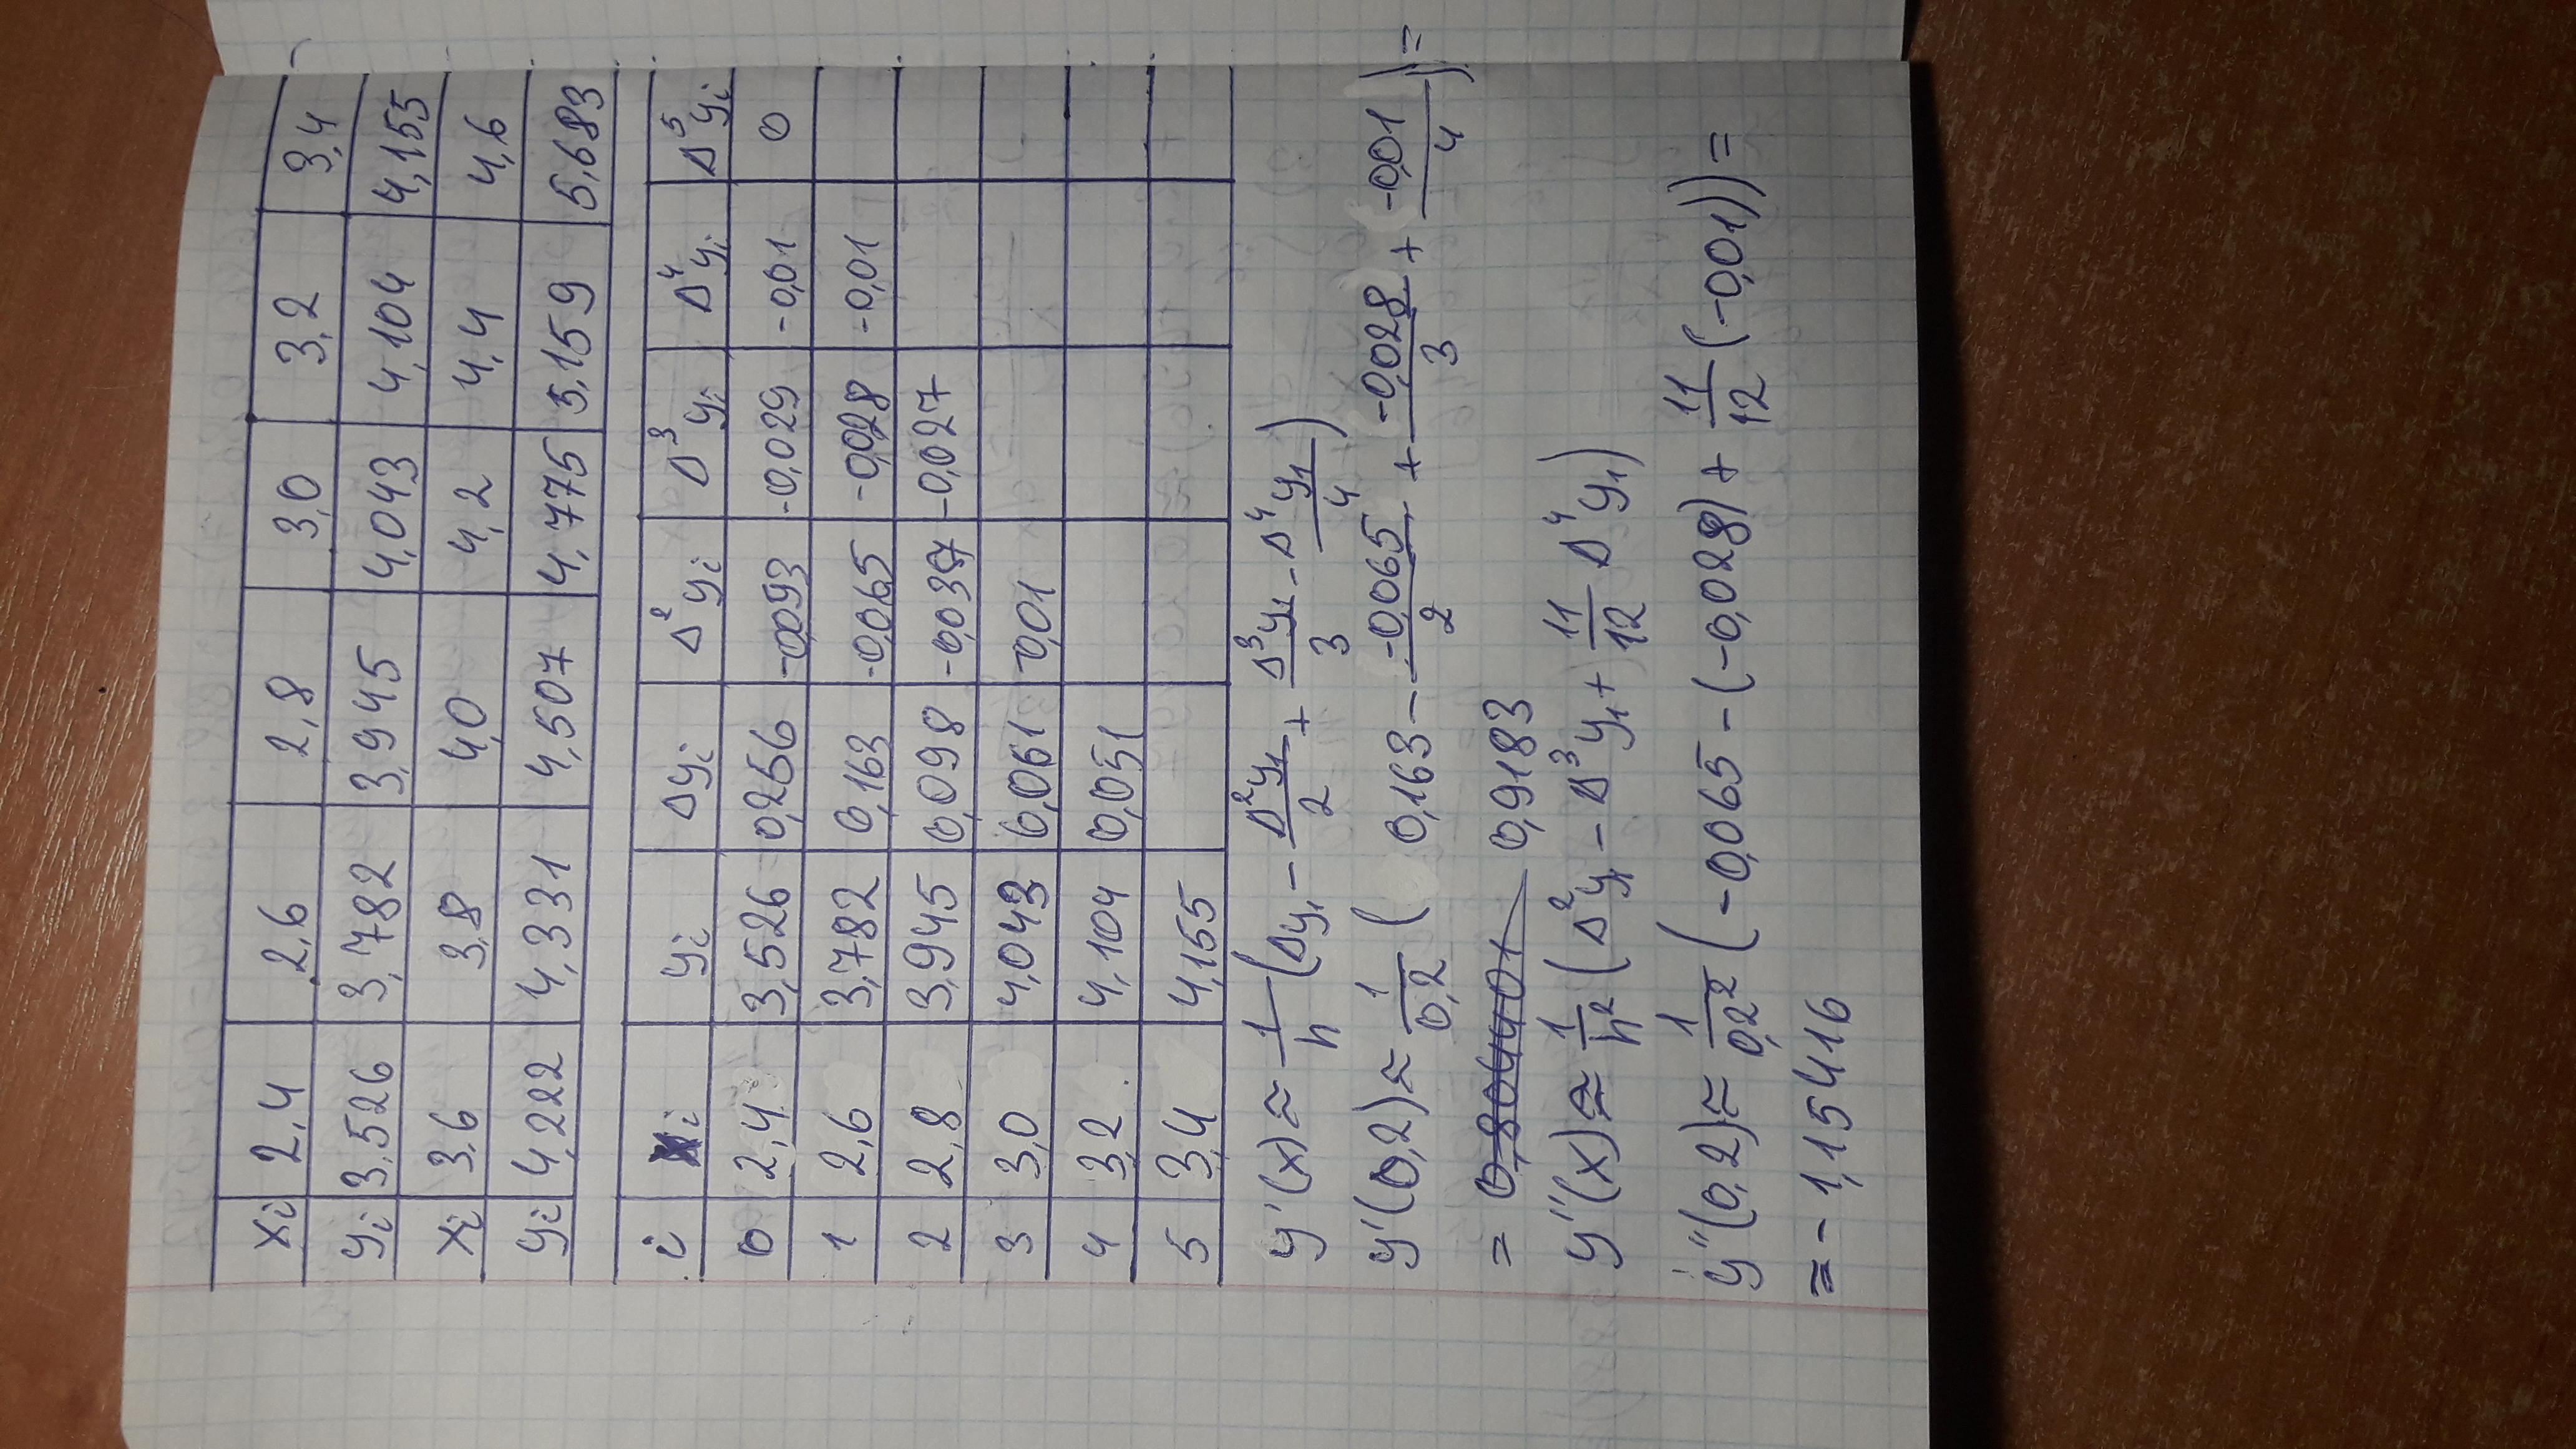 xi 2,4 2,6 2,8 3,0 3,2 3,4
yi 3,526 3,782 3,945 4,043 4,104 4,155
xi 3,6 3,8 4,0 4,2 4,4 4,6
yi 4,222 4,331 4,507 4,775 5,159 5,683
i xi yi Δyi Δ²yi Δ³yi Δ⁴yi Δ⁵yi
0 2,4 3,526 0,256 -0,093 -0,029 -0,01 0
1 2,6 3,782 0,163 -0,065 -0,028 -0,01
2 2,8 3,945 0,098 -0,037 -0,027
3 3,0 4,043 0,061 -0,01
4 3,2 4,104 0,051
5 3,4 4,155
y'(x) ≈ 1/h (Δy₁ - Δ²y₁/2 + Δ³y₁/3 - Δ⁴y₁/4)
y'(0,2) ≈ 1/0,2 ( 0,163 - -0,065/2 + -0,028/3 + -0,01/4 ) =
= 0,804401 0,9183
y''(x) ≈ 1/h² (Δ²y₁ - Δ³y₁ + 11/12 Δ⁴y₁)
y''(0,2) ≈ 1/0,2² (-0,065 - (-0,028) + 11/12 (-0,01)) =
= -1,15416